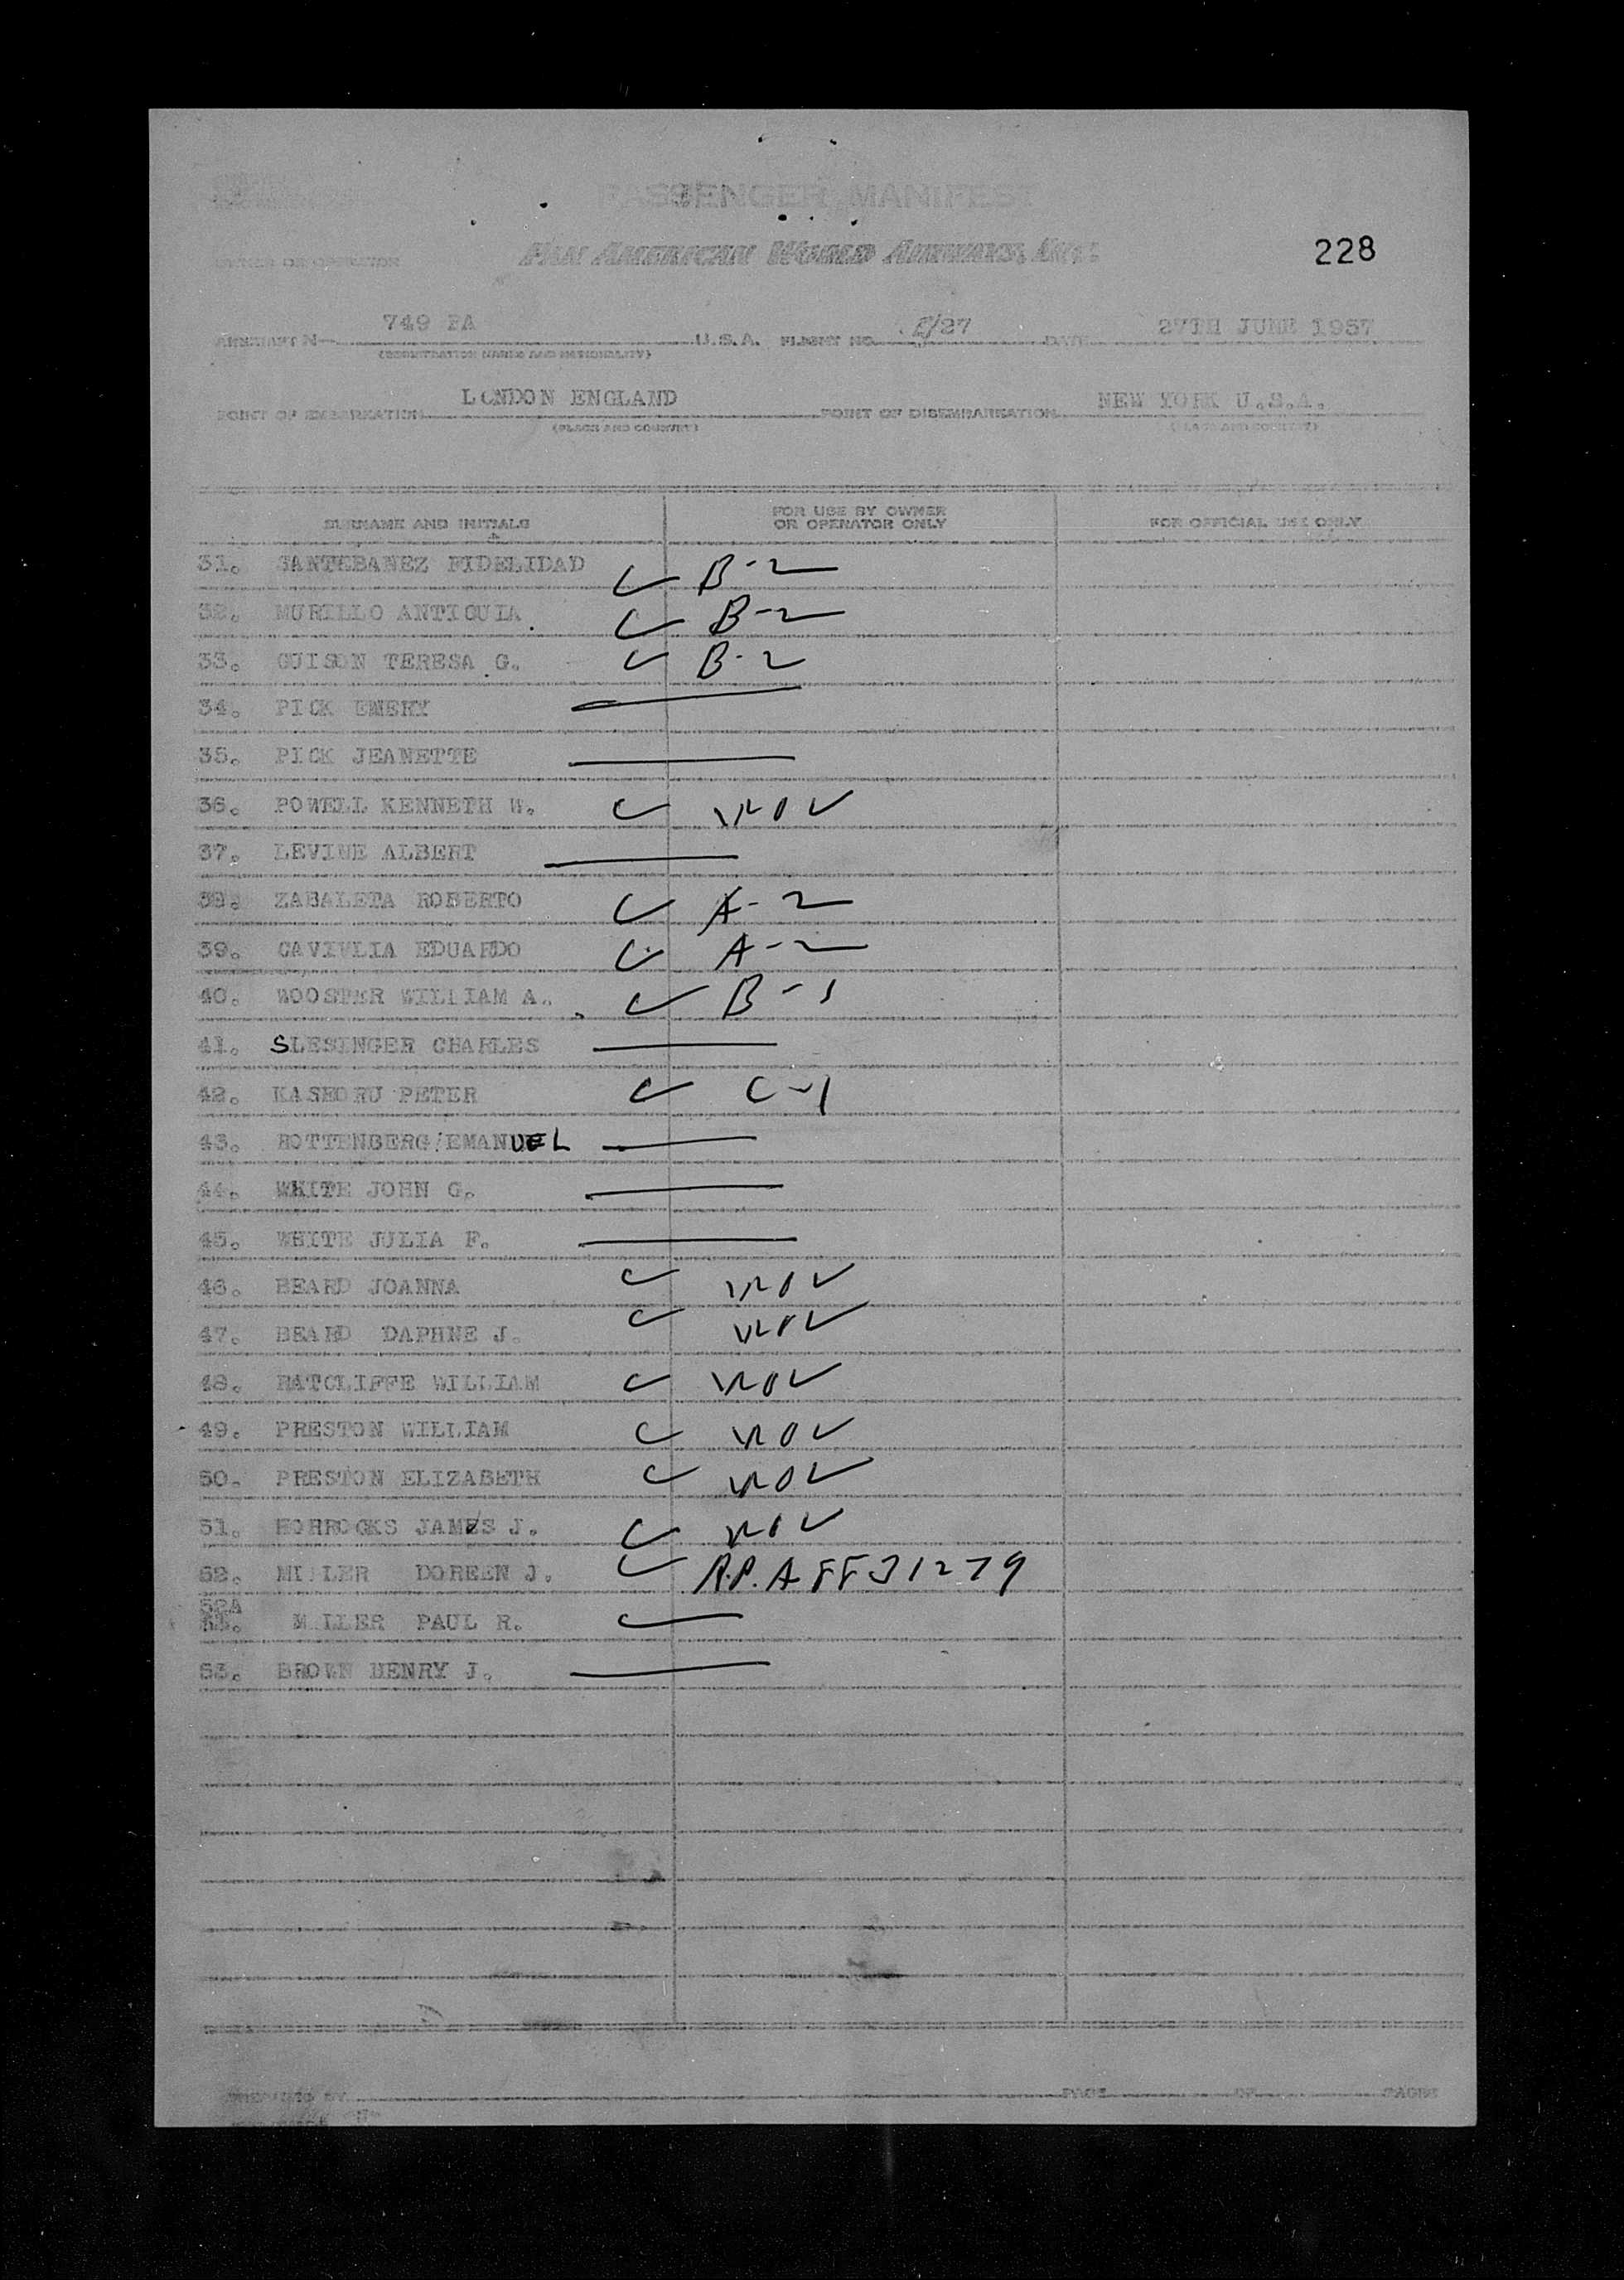 PASSENGER MANIFEST
OWNER OR OPERATOR PAN AMERICAN WORLD AIRWAYS, INC. 228
AIRCRAFT N— 749 PA U.S.A. FLIGHT NO. /27 DATE 27TH JUNE 1957
(REGISTRATION MARKS AND NATIONALITY)
POINT OF EMBARKATION LONDON ENGLAND POINT OF DISEMBARKATION NEW YORK U.S.A.
(PLACE AND COUNTRY) (PLACE AND COUNTRY)
SURNAME AND INITIALS FOR USE BY OWNER OR OPERATOR ONLY FOR OFFICIAL USE ONLY
31. SANTEBANEZ FIDELIDAD B-2
32. MURILLO B-2
33. GUISON TERESA G. B-2
34. PICK EMERY
35. PICK JEANETTE
36. POWELL KENNETH W.
37. LEVINE ALBERT
38. ZABALETA ROBERTO A-2
39. EDUARDO A-2
40. WOOSTER WILLIAM A. B-1
41. SLESINGER CHARLES
42. PETER C-1
43. ROTTENBERG/EMANUEL
44. WHITE JOHN G.
45. WHITE JULIA F.
46. BEARD JOANNA
47. BEARD DAPHNE J.
48. RATCLIFFE WILLIAM
49. PRESTON WILLIAM
50. PRESTON ELIZABETH
51. HORROCKS JAMES J.
52. MILLER DOREEN J.
52A
MILLER PAUL R.
53. BROWN HENRY J.
PREPARED BY PAGE OF PAGES